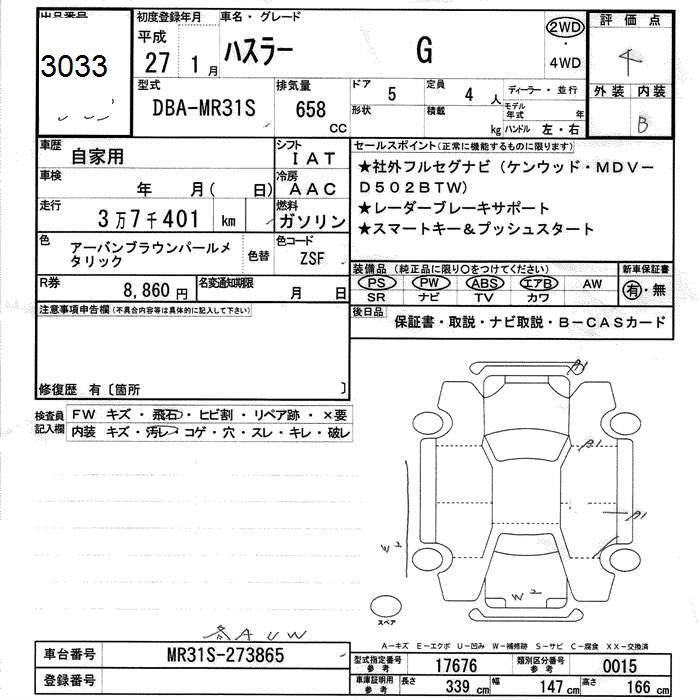 出品番号
3033
初度登録年月
平成
27 年 1 月
車名・グレード
ハスラー G
2WD
・
4WD
評価点
4
型式
DBA-MR31S
排気量
658
CC
ドア 5
定員 4 人
ディーラー・並行
形状
積載 kg
モデル年式 年
ハンドル 左・右
外装 内装
B
車歴 自家用
シフト IAT
車検 年 月( 日)
冷房 AAC
走行 3万7千401 km
燃料 ガソリン
色 アーバンブラウンパールメタリック
色替
色コード ZSF
R券 8,860円
名変通知期限 月 日
セールスポイント(正常に機能するものに限ります)
★社外フルセグナビ(ケンウッド・MDV-
D502BTW)
★レーダーブレーキサポート
★スマートキー&プッシュスタート
装備品(純正品に限り○をつけてください)
新車保証書
PS PW ABS エアB AW
有・無
SR ナビ TV カワ
後日品 保証書・取説・ナビ取説・B-CASカード
注意事項申告欄(不具合内容等は具体的に記入して下さい)
修復歴 有〔箇所 〕
検査員
記入欄
FW キズ・飛石・ヒビ割・リペア跡・×要
内装 キズ・汚レ・コゲ・穴・スレ・キレ・破レ
A1
A1
A1
W2
W2
スペア
各AUW
A-キズ E-エクボ U-凹み W-補修跡 S-サビ C-腐食 XX-交換済
車台番号 MR31S-273865
登録番号
型式指定番号参考 17676
類別区分番号参考 0015
車庫証明用参考 長さ 339 cm 幅 147 cm 高さ 166 cm